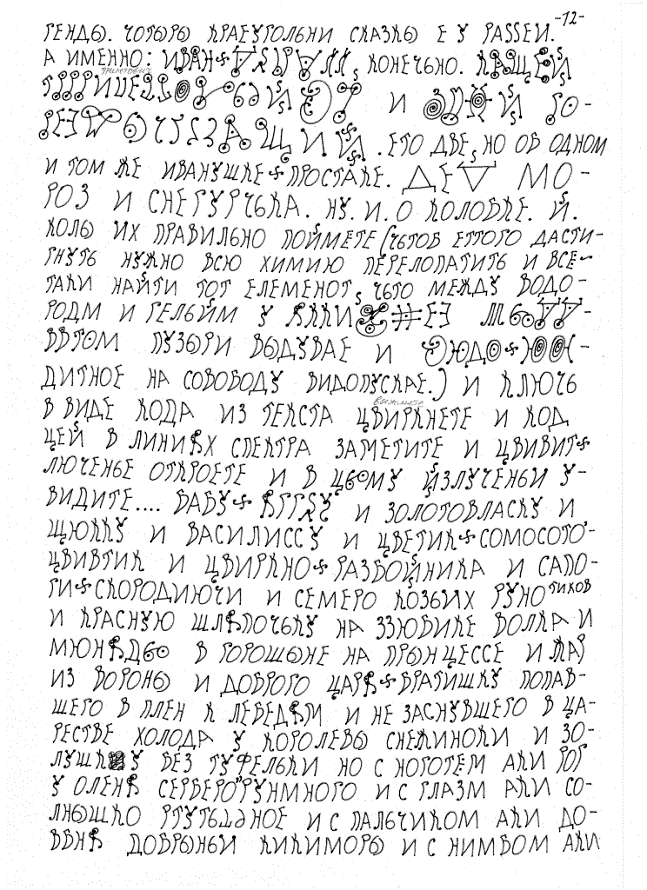 -12-
ГЕНДЫ. ЧОТЫРЫ КРАЕУГОЛЬНИ СКАЗКЫ Е У РАSSЕИ.
А ИМЕННО: ИВАН КОНЕЧЬНО. КАЩЕЙ
И ГО-
ЕТО ДВЕ, НО ОБ ОДНОМ
И ТОМ ЖЕ ИВАНУШКЕ-ПРОСТАКЕ. ДЕД МО-
РОЗ И СНЕГУРЧЬКА. НУ. И. О КОЛОБКЕ. Й.
КОЛЫ ИХ ПРАВИЛЬНО ПОЙМЕТЕ (ЧЬТОБ ЕТТОГО ДАСТИ-
ГНУТЬ НУЖНО ВСЮ ХИМИЮ ПЕРЕЛОПАТИТЬ И ВСЕ-
ТАКИ НАЙТИ ТОТ ЕЛЕМЕНОТ, ЧЬТО МЕЖДУ ВОДО-
РОДМ И ГЕЛЬЙМ У
ВВТОМ ПУЗЫРИ ВЫДУВАЕ И
ДИТНОЕ НА СОВОБОДУ ВИДОПУСКАЕ.) И КЛЮЧЬ
В ВИДЕ КОДА ИЗ ТЕКСТА ЦВИРКНЕТЕ И КОД
ЦЕЙ В ЛИНИЯХ СПЕКТРА ЗАМЕТИТЕ И ЦВИВИТ-
ЛЮЧЕНЬЕ ОТКРОЕТЕ И В ЦЬОМУ ЙЗЛУЧЕНЬИ У-
ВИДИТЕ.... БАБУ-ЯГГЗУ И ЗОЛОТОВЛАСКУ И
ЩЮККУ И ВАСИЛИССУ И ЦВЕТИК-СОМОСОТО'-
ЦВИВТИК И ЦВИРКНО-РАЗБОЙНИКА И САПО-
ГИ-СКОРОДИЮЧИ И СЕМЕРО КОЗЬИХ РУНО ТИКОВ
И КРАСНУЮ ШЛЯПОЧЬКУ НА ЗЗЮБИКЕ ВОЛКА И
МЮНЯДЬО В ГОРОШЫНЕ НА ПРЫНЦЕССЕ И ЖАР
ИЗ ВОРОНЫ И ДОБРОГО ЦАРЯ-БРАТИШКУ ПОПАВ-
ШЕГО В ПЛЕН К ЛЕБЕДЯМ И НЕ ЗАСНУВШЕГО В ЦА-
РЕСТВЕ ХОЛОДА У КОРОЛЕВЫ СНЕЖИНОКИ И ЗО-
ЛУШК У БЕЗ ТУФЕЛЬКИ НО С НОГОТЕМ АКИ РОГ
У ОЛЕНЯ СЕРВЕРО'РУНМНОГО И С ГЛАЗМ АКИ СО-
ЛНЫШКО РТУТЬДАНОЕ И С ПАЛЬЧИКОМ АКИ ДО-
БВНЯ ДОБРЫНЬИ КИКИМОРЫ И С НИМБОМ АКИ